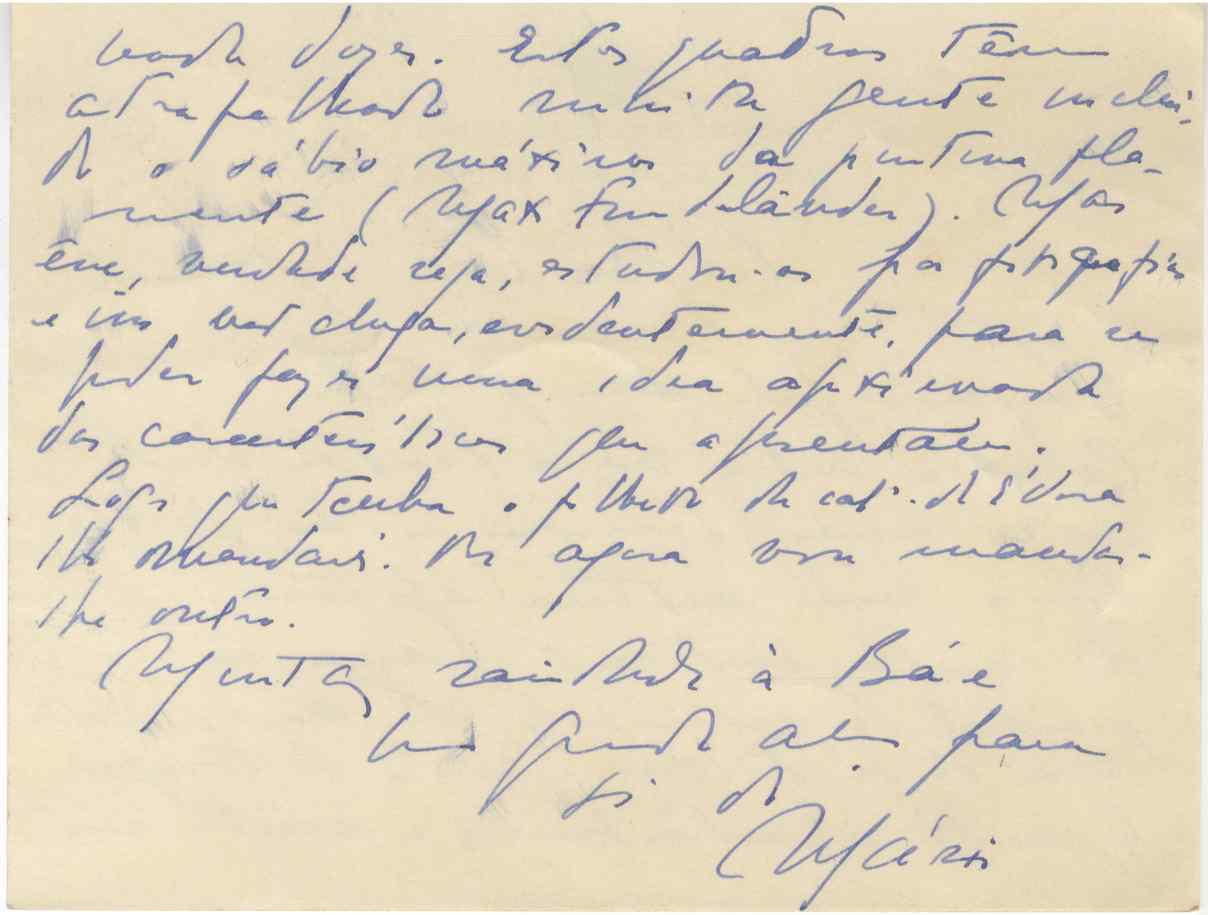 nada dizer. Estes quadros têm
atrapalhado muita gente inclui-
do o sábio máximo da pintura fla-
menga (Max Friedländer). Mas
êle, verdade seja, estudou-os por fotografias
e isso não chega, evidentemente, para se
poder fazer uma idea aproximada
das características que apresentam.
Logo que tenha o folheto da cat. de Évora
lho mandarei. De agora vou mandar-
lhe outro.
Muitas saudades à Bá e
um grande abr. para
si do
Mário